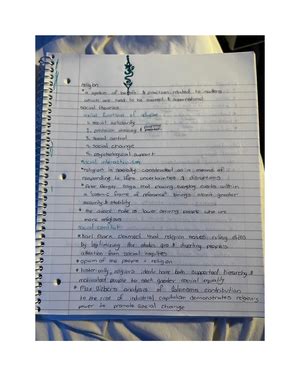 religion:
• a system of beliefs & practices related to matters
which are said to be sacred & supernatural
social theories
social functions of religion
1. social solidarity
2. provision meaning &
3. social control
4. social change
5. psychological support
social interactionism
• religion is socially constructed as a means of
responding to life's uncertainties & disruptions
• Peter Berger says that placing everyday events within
a "cosmic frame of reference" brings about greater
security & stability
• the elderly tend to be among people who are
more religious
social conflict
• Karl Marx claimed that religion serves ruling elites
by legitimizing the status quo & diverting people's
attention from social inequities
• opium of the people = religion
• historically, religious ideals have both supported hierarchy &
motivated people to seek greater social equality
• Max Weber's analysis of Calvinism's contribution
to the rise of industrial capitalism demonstrates religion's
power to promote social change